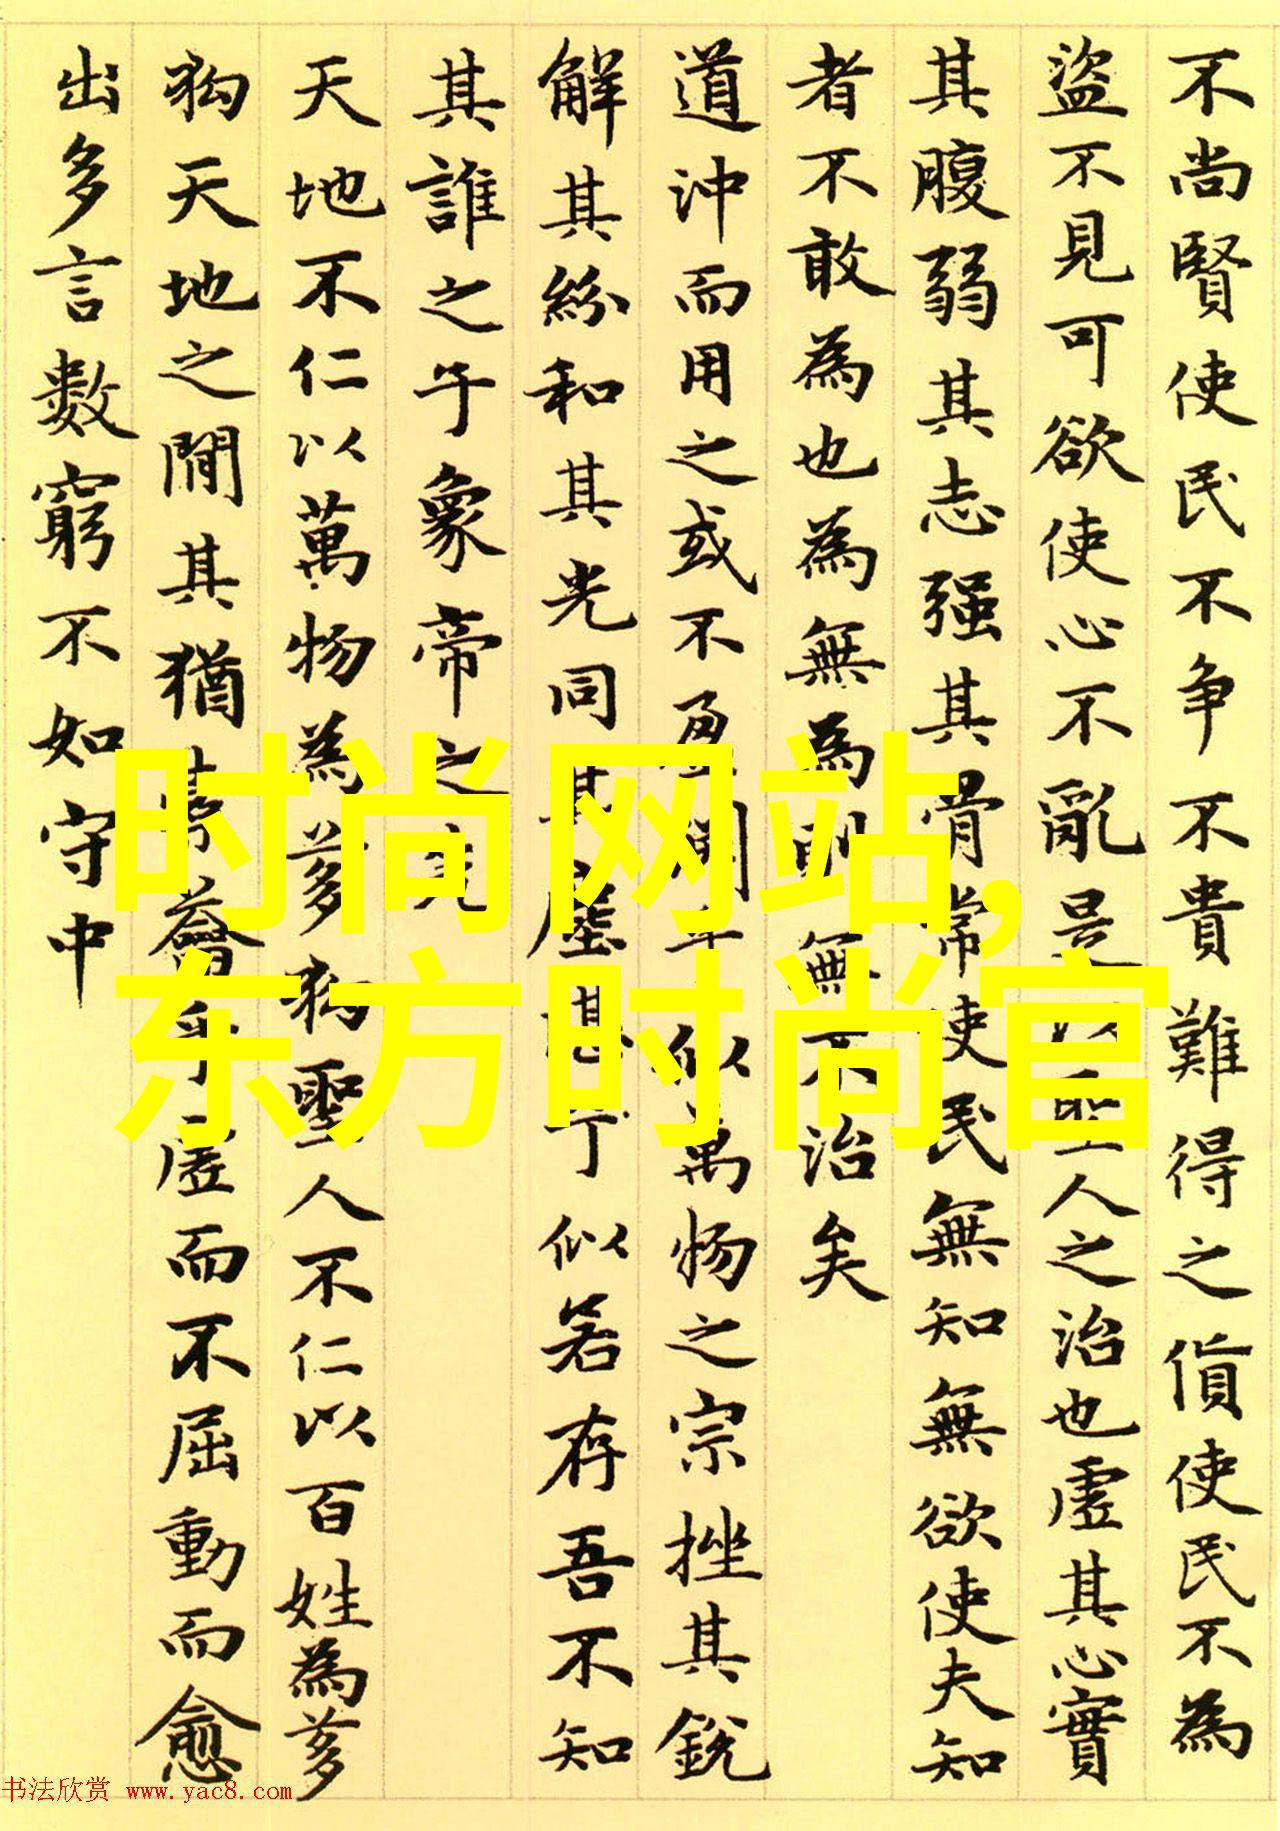 不尚賢使民不争不貴難得之貨使民不為
盜不見可欲使心不亂是以聖人之治也虛其心實
其腹弱其志强其骨常使民無知無欲使夫知
者不敢為也為無為則無不治矣
道沖而用之或不盈淵乎似萬物之宗挫其銳
解其紛和其光同其塵湛丁似若存吾不知
其誰之子象帝之先
天地不仁以萬物為芻狗聖人不仁以百姓為芻
狗天地之間其猶橐籥乎虛而不屈動而愈
出多言數窮不如守中
时尚网站,
东方时尚官
书法欣赏 www.yac8.com